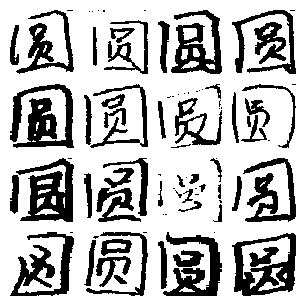 圆圆圆圆
圆圆圆圆
圆圆圆圆
圆圆圆圆